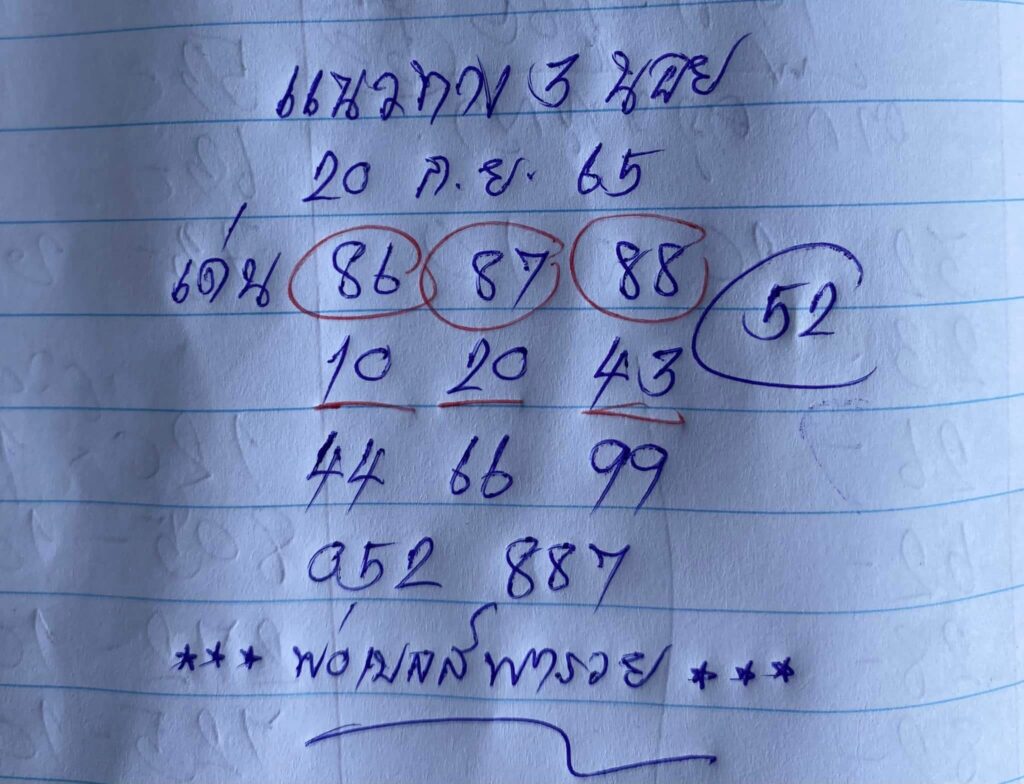 แนวทาง 3 นอย
20 ก.ย. 65
เด่น 86 87 88 52
10 20 43
44 66 99
052 887
*** พ่อเบลล์พารวย ***